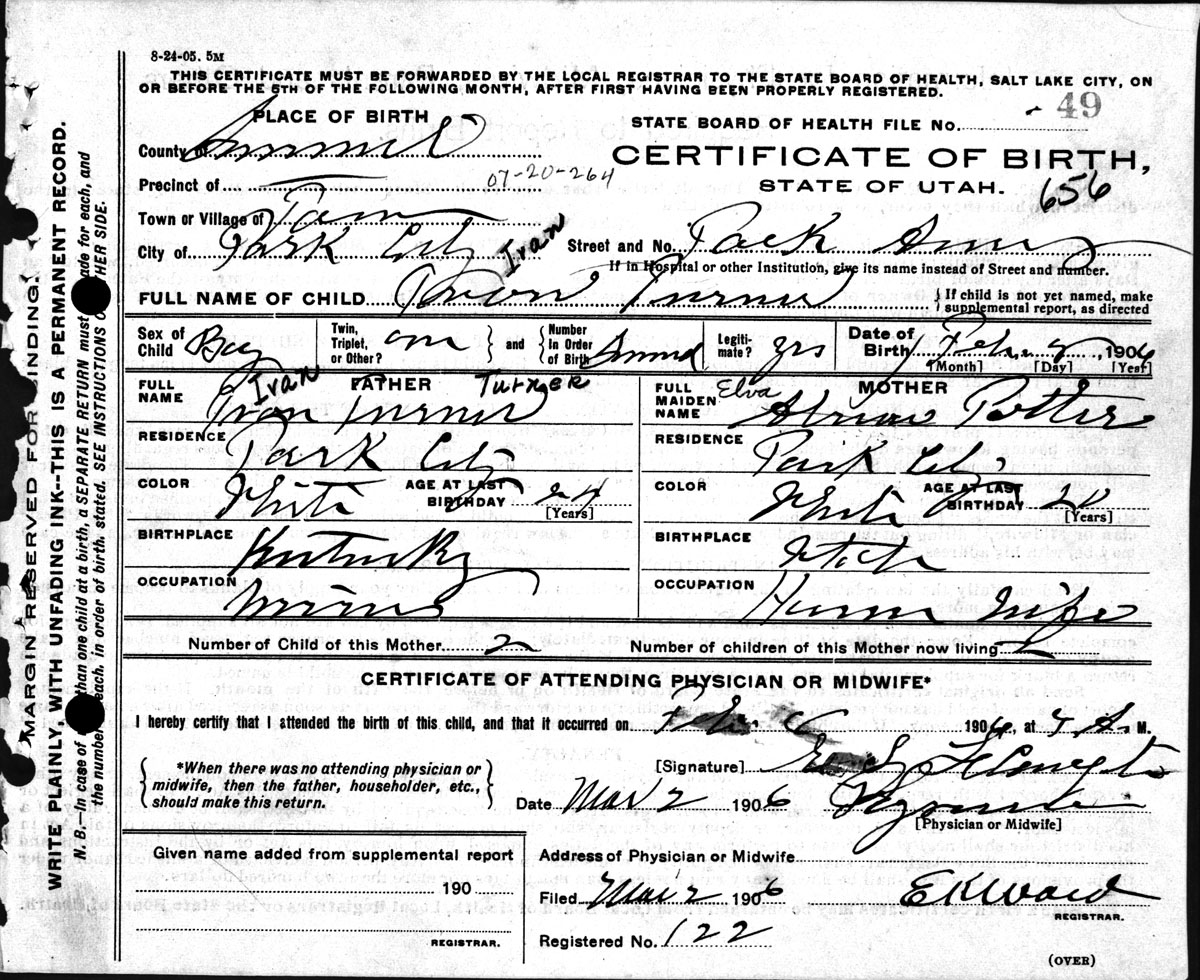 8-24-05. 5M
THIS CERTIFICATE MUST BE FORWARDED BY THE LOCAL REGISTRAR TO THE STATE BOARD OF HEALTH, SALT LAKE CITY, ON
OR BEFORE THE 5TH OF THE FOLLOWING MONTH, AFTER FIRST HAVING BEEN PROPERLY REGISTERED.
PLACE OF BIRTH
STATE BOARD OF HEALTH FILE No. 49
County of Summit
CERTIFICATE OF BIRTH,
Precinct of
07-20-264
STATE OF UTAH.
656
Town or Village of
City of Park City
Street and No. Park
If in Hospital or other Institution, give its name instead of Street and number.
Ivan
FULL NAME OF CHILD Turner
If child is not yet named, make
supplemental report, as directed
Sex of Child Boy
Twin, Triplet, or Other? one
and
Number In Order of Birth
Legiti-mate? yes
Date of Birth Feb. 1906
[Month] [Day] [Year]
FATHER
FULL NAME Ivan Turner
Ivan Turner
RESIDENCE Park City
COLOR White
AGE AT LAST BIRTHDAY 24
[Years]
BIRTHPLACE Kentucky
OCCUPATION Miner
MOTHER
FULL MAIDEN NAME Elva Potter
RESIDENCE Park City
COLOR White
AGE AT LAST BIRTHDAY
[Years]
BIRTHPLACE Utah
OCCUPATION House Wife
Number of Child of this Mother 2
Number of children of this Mother now living 2
CERTIFICATE OF ATTENDING PHYSICIAN OR MIDWIFE*
I hereby certify that I attended the birth of this child, and that it occurred on Feb 1906, at A. M.
*When there was no attending physician or
midwife, then the father, householder, etc.,
should make this return.
[Signature]
Date Mar 2 1906
[Physician or Midwife]
Given name added from supplemental report
190
REGISTRAR.
Address of Physician or Midwife
Filed Mar 2 1906 E K Ward
REGISTRAR.
Registered No. 122
(OVER)
MARGIN RESERVED FOR BINDING.
WRITE PLAINLY, WITH UNFADING INK--THIS IS A PERMANENT RECORD.
N. B.—In case of than one child at a birth, a SEPARATE RETURN must ade for each, and
the number each, in order of birth, stated. SEE INSTRUCTIONS O HER SIDE.